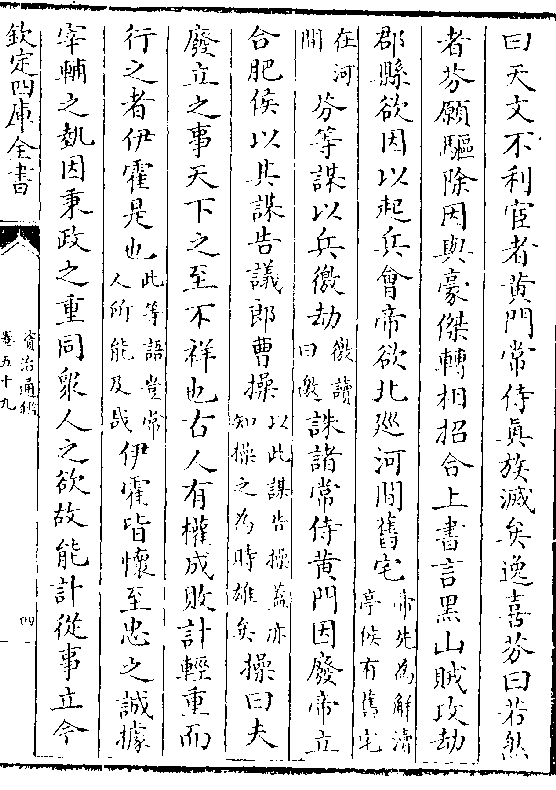 曰天文不利宦者黄門常侍真族滅矣逸喜芬曰若然
者芬願驅除因與豪傑轉相招合上書言黑山賊攻劫
郡縣欲因以起兵會帝欲北廵河間舊宅帝先為解瀆亭侯有舊宅
在河間芬等謀以兵徼劫徼讀曰邀誅諸常侍黄門因廢帝立
合肥侯以其謀告議郎曹操以此謀告操蓋亦知操之為時雄矣操曰夫
廢立之事天下之至不祥也古人有權成敗計輕重而
行之者伊霍是也此等語豈常人所能及哉伊霍皆懷至忠之誠據
宰輔之埶因秉政之重同衆人之欲故能計從事立今
欽定四庫全書
資治通鑑
卷五十九
四